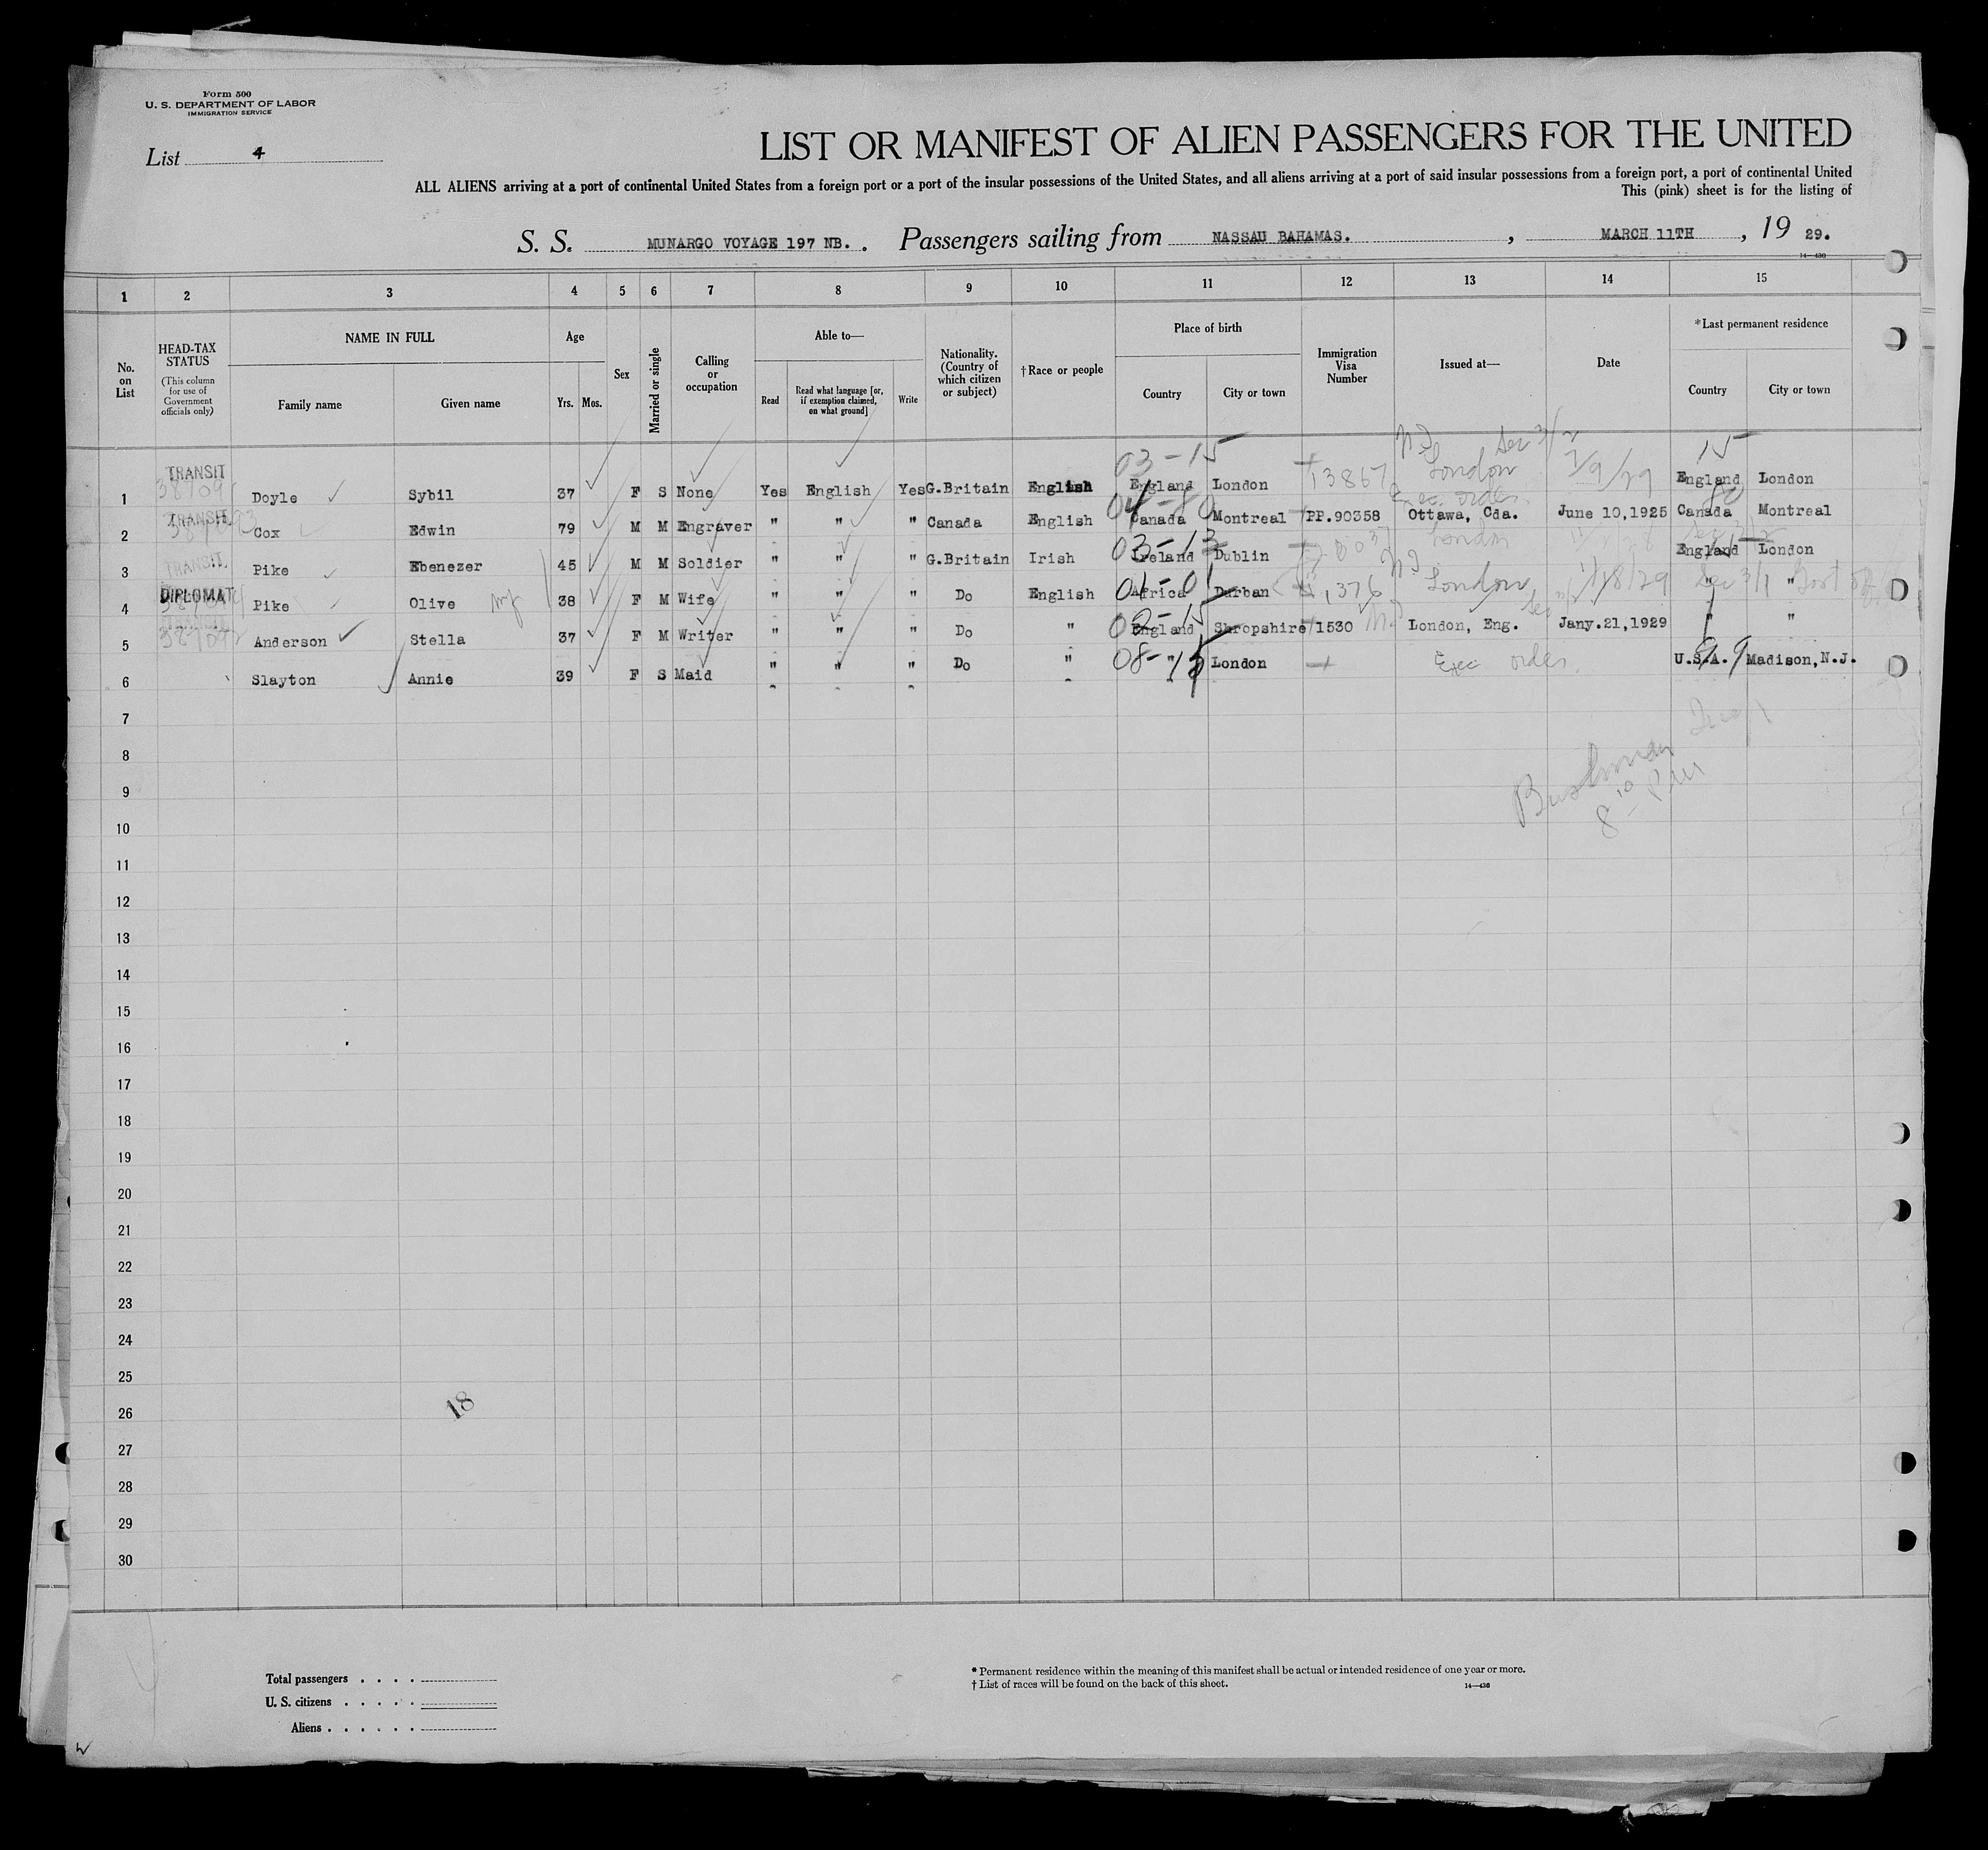 Form 500
U. S. DEPARTMENT OF LABOR
IMMIGRATION SERVICE
List 4
LIST OR MANIFEST OF ALIEN PASSENGERS FOR THE UNITED
ALL ALIENS arriving at a port of continental United States from a foreign port or a port of the insular possessions of the United States, and all aliens arriving at a port of said insular possessions from a foreign port, a port of continental United
This (pink) sheet is for the listing of
S. S. MUNARGO VOYAGE 197 NB. . Passengers sailing from NASSAU BAHAMAS. , MARCH 11TH , 19 29.
14—430
1 2 3 4 5 6 7 8 9 10 11 12 13 14 15
No. on List
HEAD-TAX STATUS (This column for use of Government officials only)
NAME IN FULL
Family name Given name
Age
Yrs. Mos.
Sex
Married or single
Calling or occupation
Able to—
Read
Read what language [or, if exemption claimed, on what ground]
Write
Nationality. (Country of which citizen or subject)
†Race or people
Place of birth
Country City or town
Immigration Visa Number
Issued at—
Date
*Last permanent residence
Country City or town
03-15 Sec 3/2 15
1 TRANSIT Doyle Sybil 37 F S None Yes English Yes G.Britain English England London 13867 London 1/9/29 England London
04-80 Exec order 80
2 TRANSIT Cox Edwin 79 M M Engraver " " " Canada English Canada Montreal PP.90358 Ottawa, Cda. June 10,1925 Canada Montreal
03-13 London
3 TRANSIT Pike Ebenezer 45 M M Soldier " " " G.Britain Irish Ireland Dublin England London
4 DIPLOMAT Pike Olive 38 F M Wife " " " Do English Africa Durban 1,376 London 1/18/29 Sec 3/1 " "
5 TRANSIT Anderson Stella 37 F M Writer " " " Do " England Shropshire 1530 London, Eng. Jany.21,1929 " "
6 Slayton Annie 39 F S Maid " " " Do " " London Exec order. U.S.A. Madison,N.J.
7
8
9
10
11
12
13
14
15
16
17
18
19
20
21
22
23
24
25
26
18
27
28
29
30
Total passengers . . . .
U. S. citizens . . . . .
Aliens . . . . . .
* Permanent residence within the meaning of this manifest shall be actual or intended residence of one year or more.
† List of races will be found on the back of this sheet.
14—430